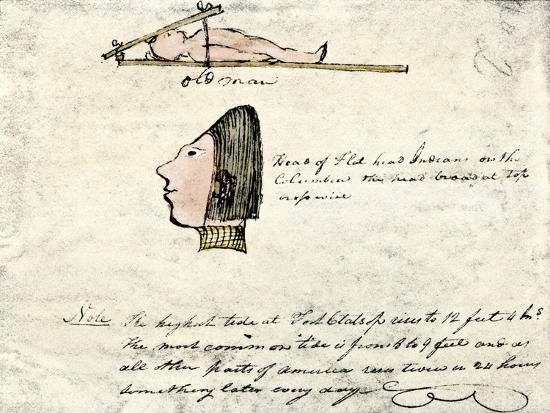 No 2
old man
Head of Flat head Indians on the
Columbia the head broad at top
crosswise
Note The highest tide at Fort Clatsop rises to 12 feet 4 Ins
The most common tide is from 8 to 9 feet and as
all other parts of america rises twice in 24 hours
something later every day